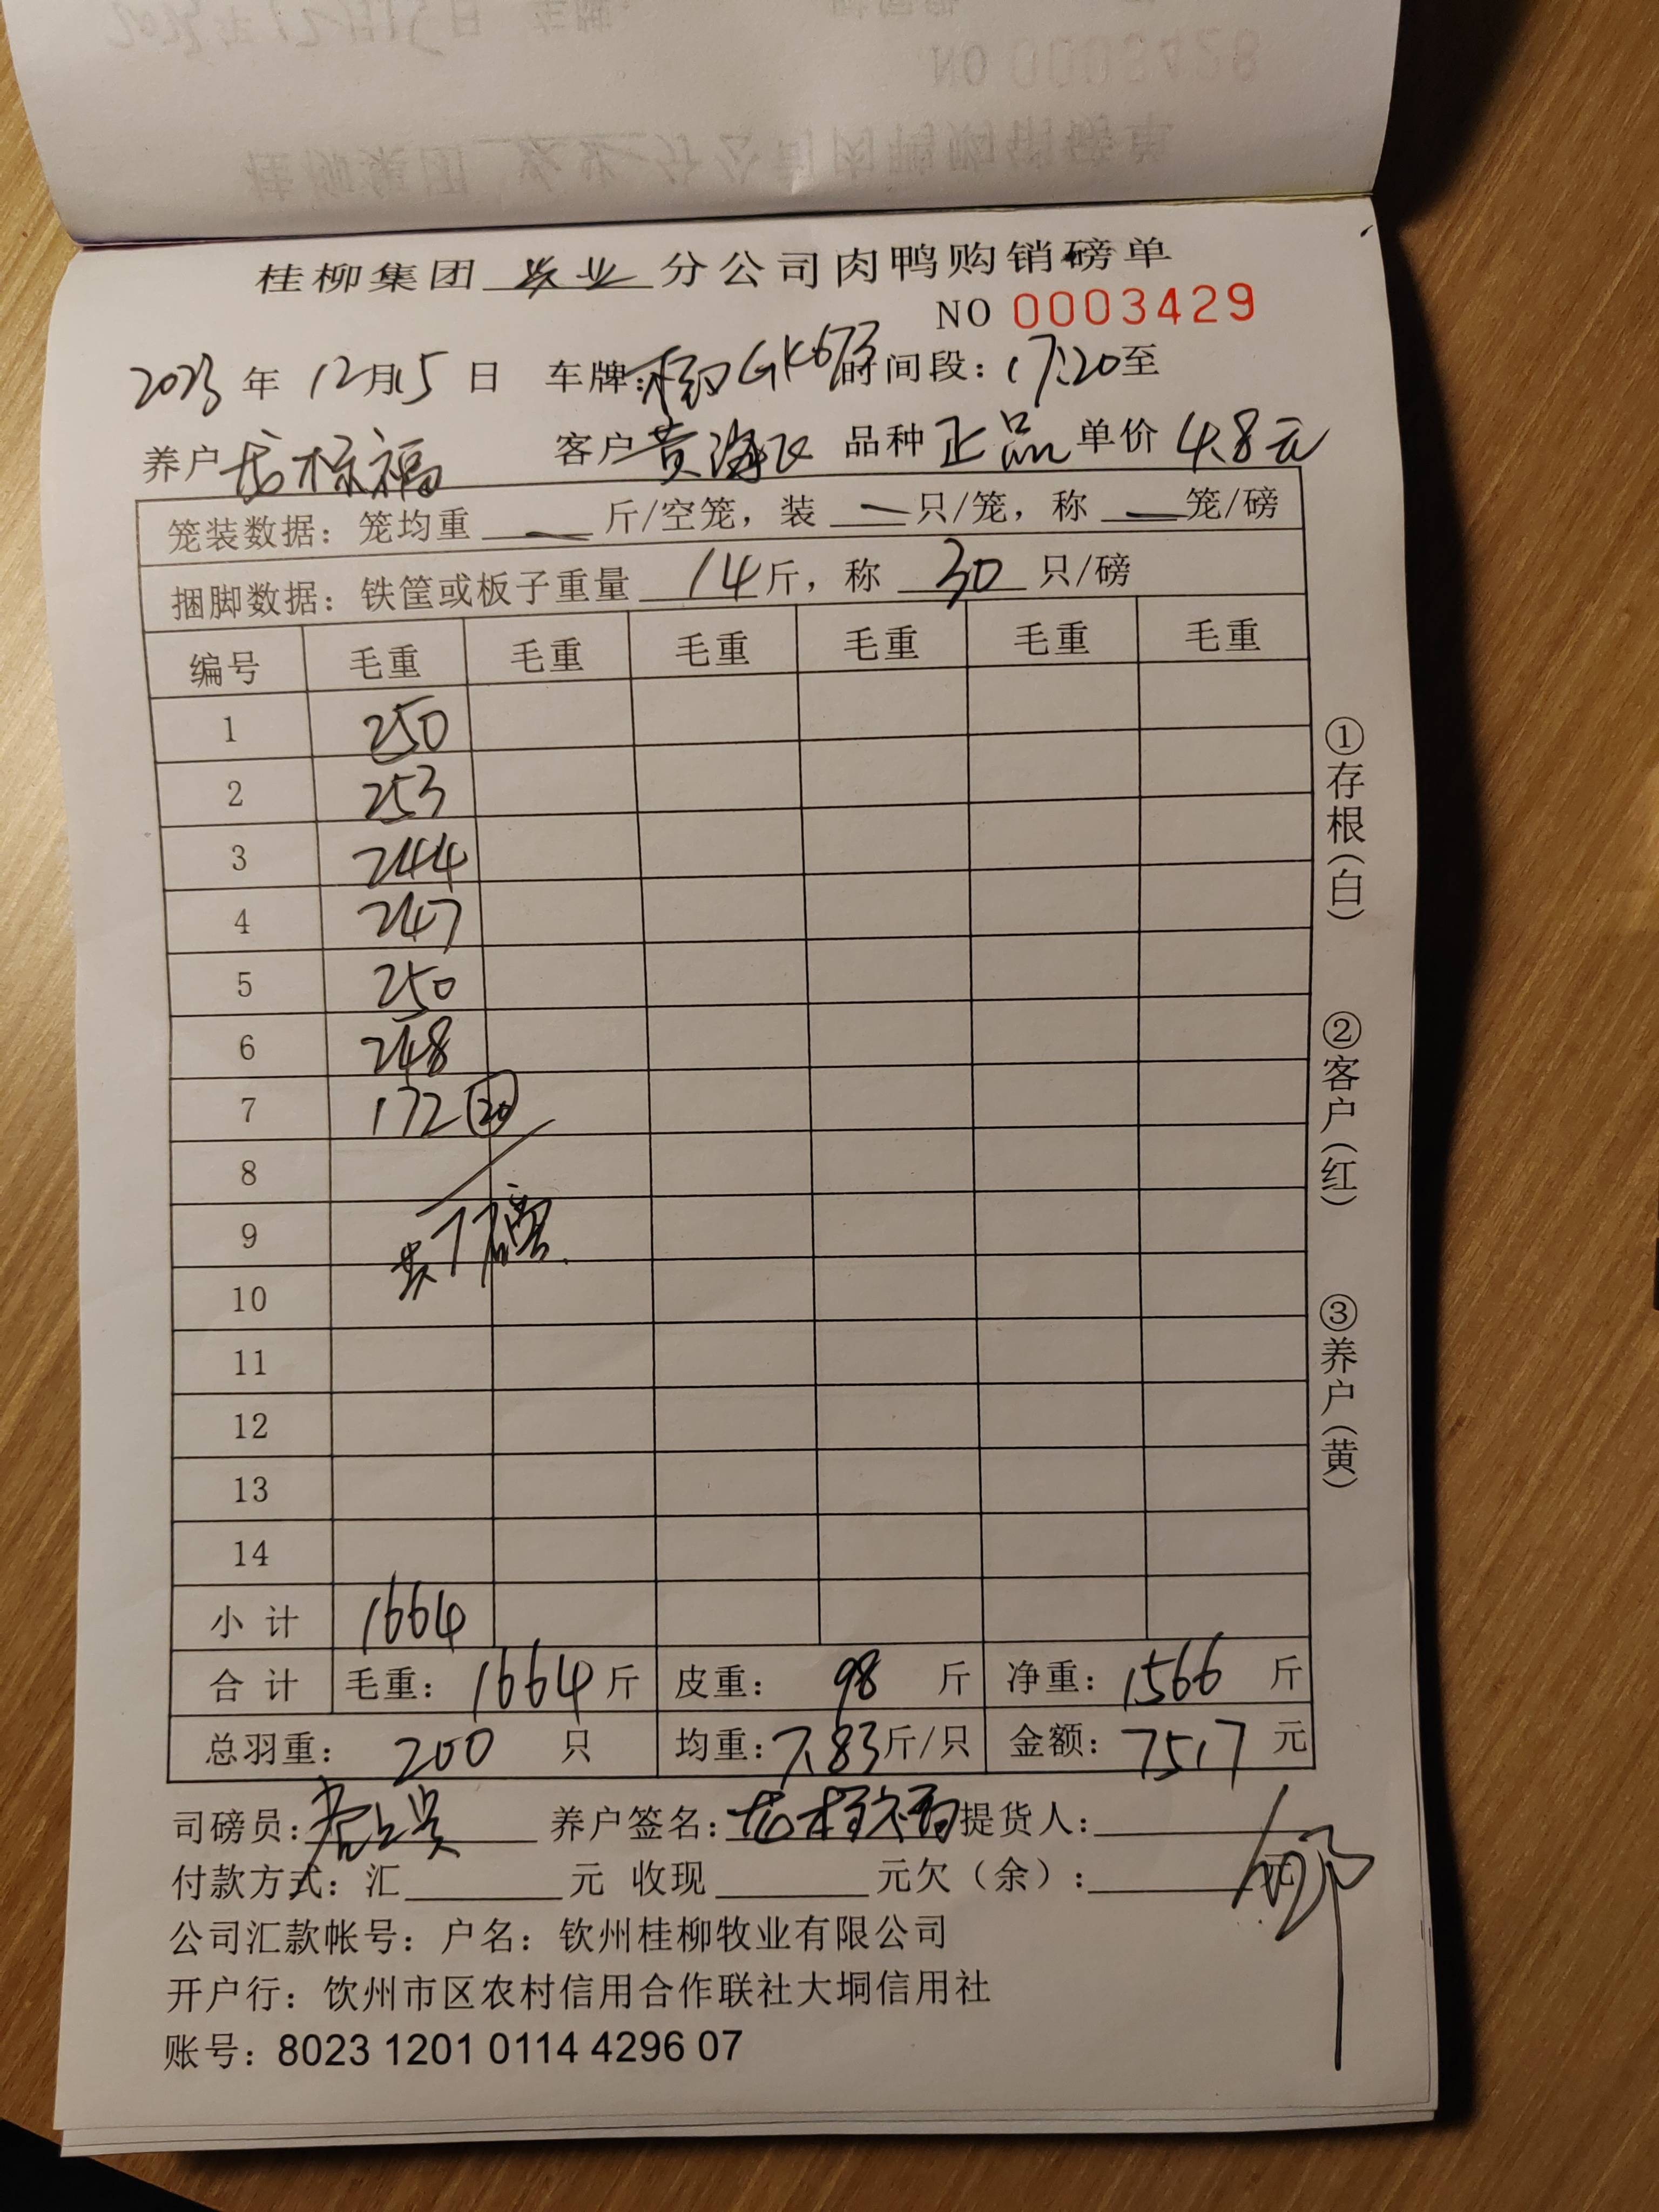 NO 0003428
桂柳集团 分公司肉鸭购销磅单
桂柳集团 农业 分公司肉鸭购销磅单
NO 0003429
2023 年 12 月 15 日 车牌: GK673 时间段: 17:20 至
养户 龙标福 客户 黄海飞 品种 正品 单价 4.8元
笼装数据: 笼均重 — 斤/空笼, 装 — 只/笼, 称 — 笼/磅
捆脚数据: 铁筐或板子重量 14 斤, 称 30 只/磅
编号 毛重 毛重 毛重 毛重 毛重 毛重
1 250
2 253
3 244
4 247
5 250
6 248
7 172 20
8
9 共7榜
10
11
12
13
14
小计 1664
合计 毛重: 1664 斤 皮重: 98 斤 净重: 1566 斤
总羽重: 200 只 均重: 7.83 斤/只 金额: 7517 元
司磅员: 养户签名: 龙标福 提货人:
付款方式: 汇 元 收现 元欠(余): 元
公司汇款帐号: 户名: 钦州桂柳牧业有限公司
开户行: 钦州市区农村信用合作联社大垌信用社
账号: 8023 1201 0114 4296 07
①存根(白)
②客户(红)
③养户(黄)